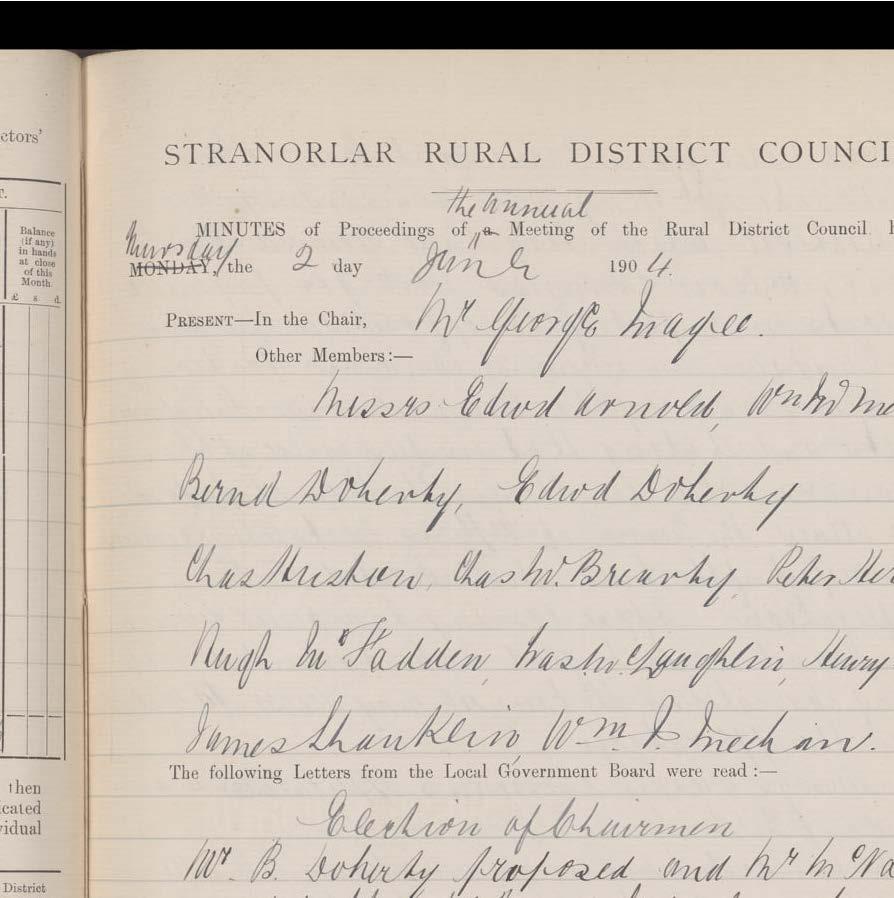 ctors'
T.
Balance
(if any)
in hands
at close
of this
Month.
£ s d.
then
icated
vidual
District
STRANORLAR RURAL DISTRICT COUNCI
the annual
MINUTES of Proceedings of a Meeting of the Rural District Council h
Thursday
MONDAY, the 2 day June 1904.
PRESENT—In the Chair, Mr George Magee.
Other Members:—
Messrs Edwd Arnold, Wm
Bernd Doherty, Edwd Doherty
Chas Huston, Chas McBrearty, Peter
Hugh McFadden, McLaughlin, Henry
James Shanklin, Wm J. Meehan.
The following Letters from the Local Government Board were read:—
Election of Chairmen
Mr. B. Doherty proposed and Mr McNa